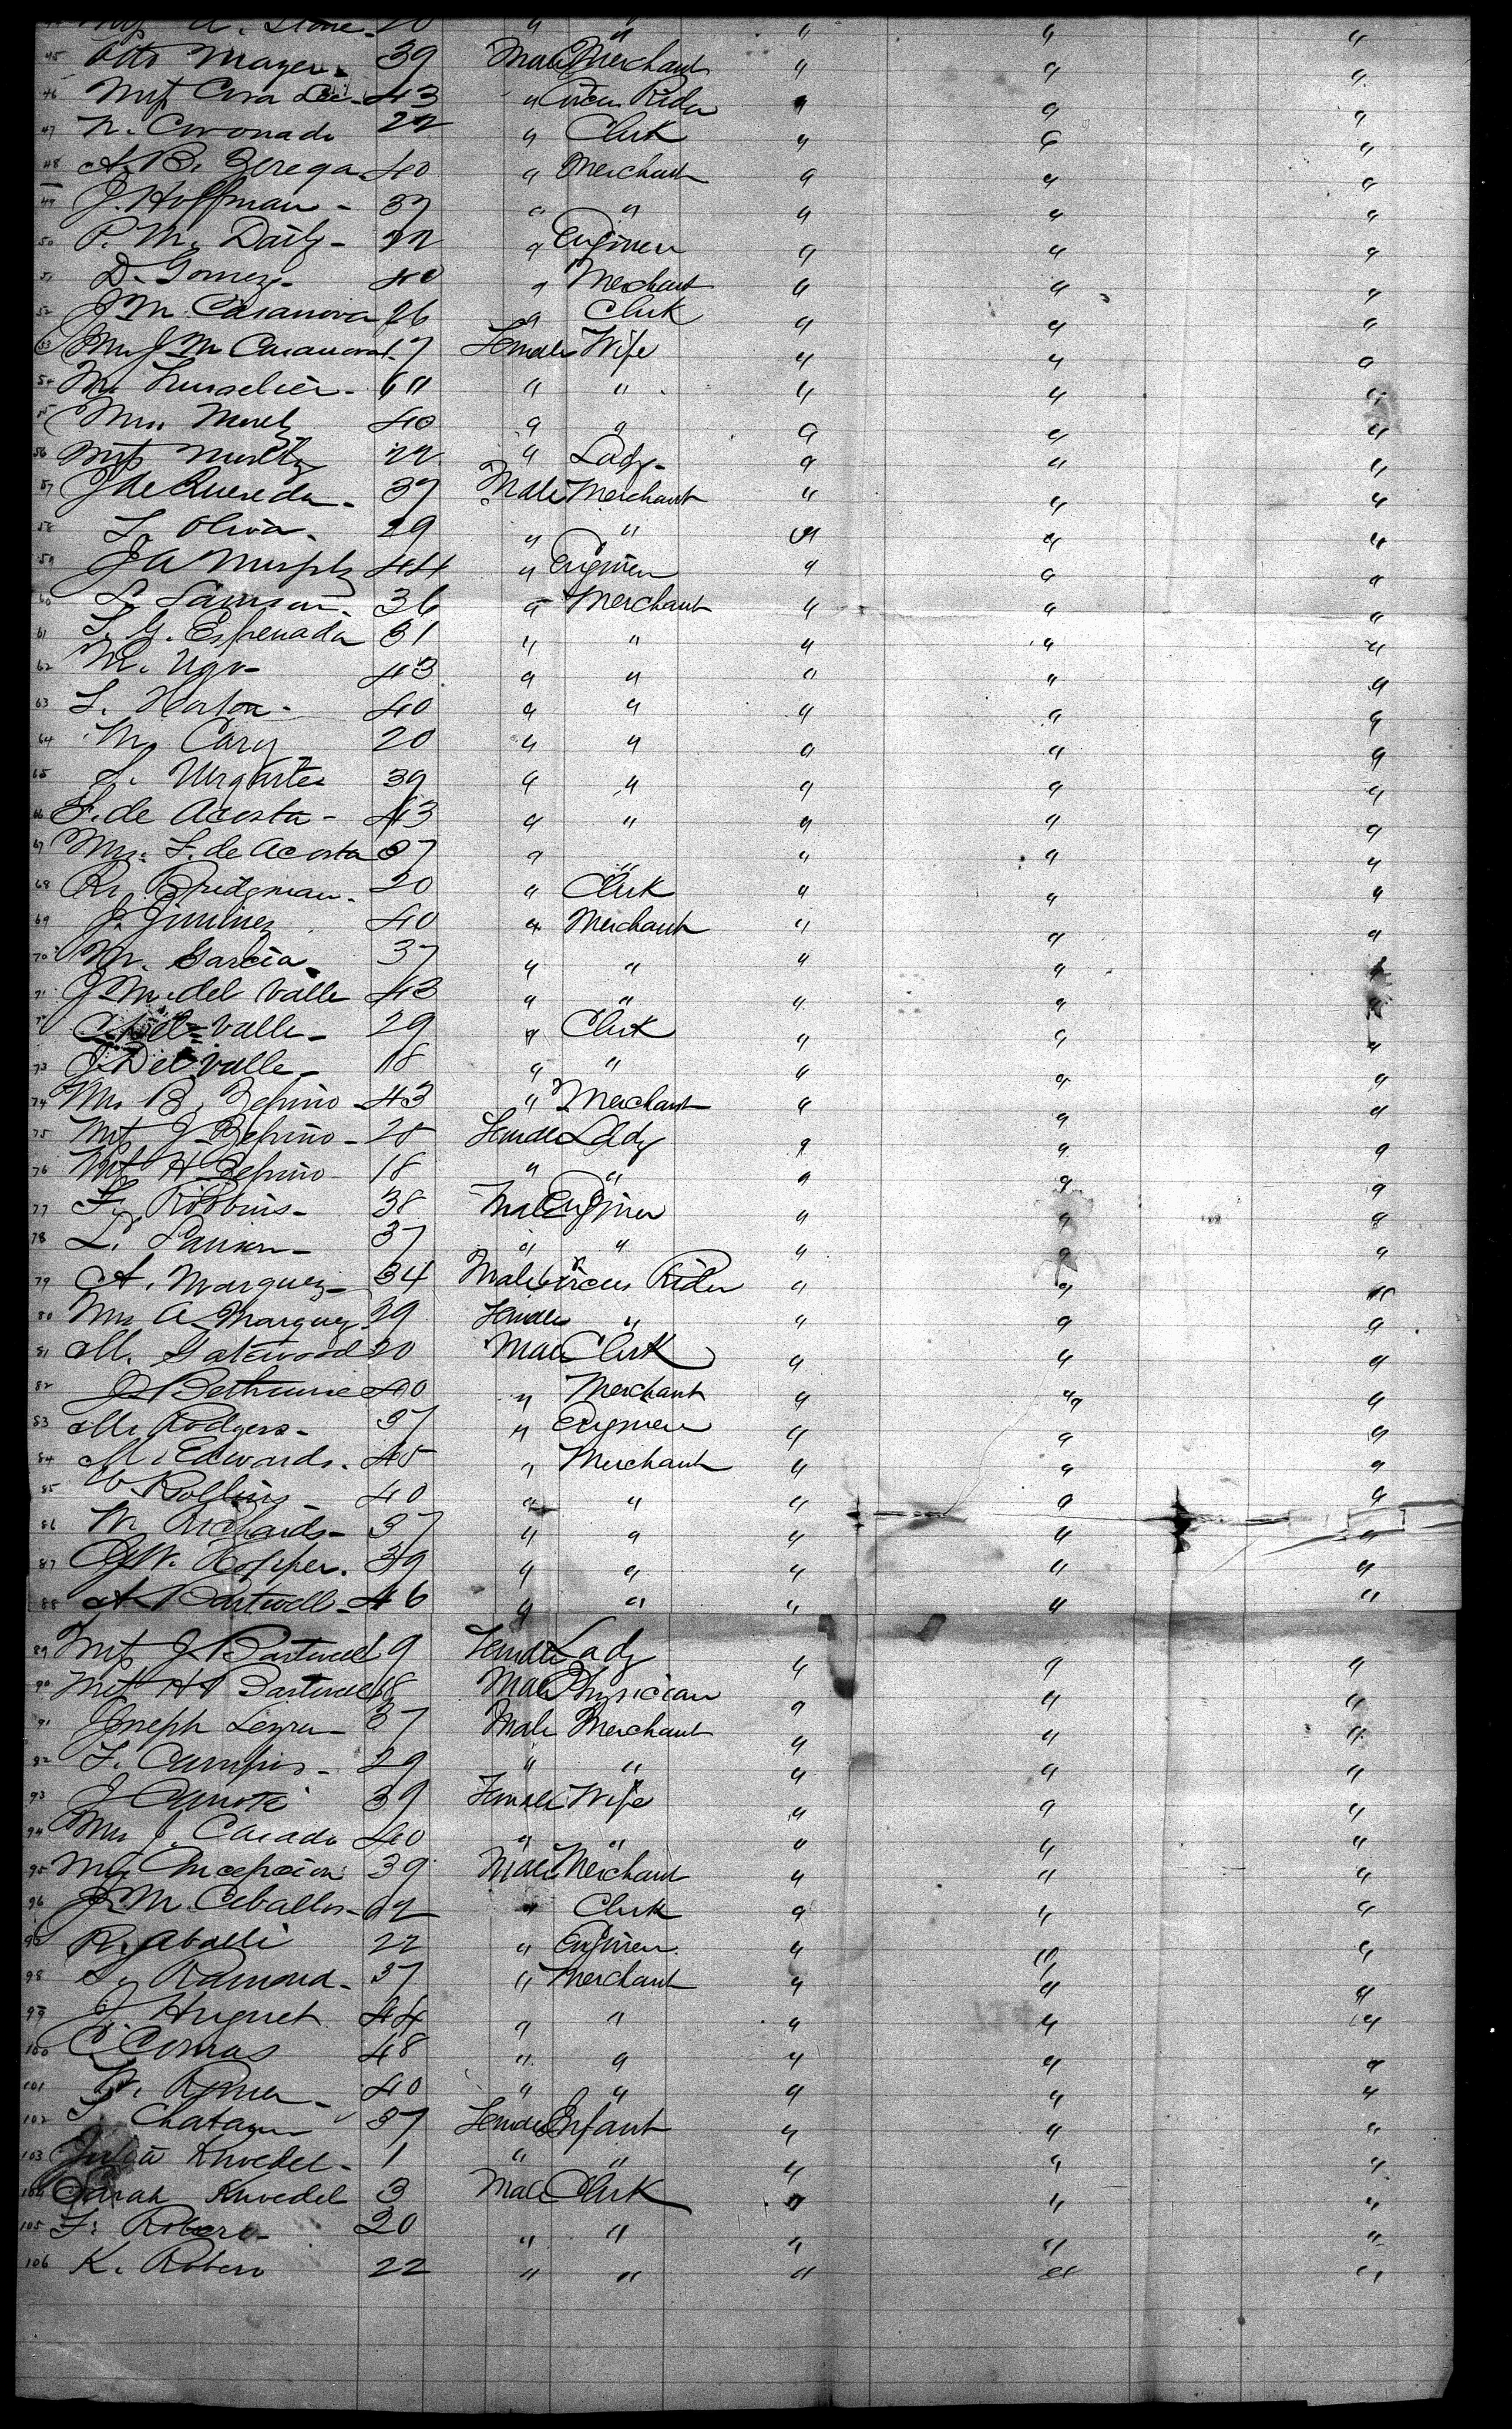 A. Stone - 20 " " " " "
45 Otto Mayer 39 Male Merchant " " "
46 Miss Cora Lee - 43 " Circus Rider " " "
47 N. Coronado 22 " Clerk " " "
48 A. B. Zerega 40 " Merchant " " "
49 J. Hoffman - 37 " " " " "
50 P. M. Daily - 22 " Engineer " " "
51 D. Gomez - 40 " Merchant " " "
52 J M Casanova 26 " Clerk " " "
53 Mrs J M Casanova 17 Female Wife " " "
54 " " " " "
55 Mrs 40 " " " " "
56 Miss 22 " Lady - " " "
57 J de Quesada - 37 Male Merchant " " "
58 L. Oliva - 29 " " " " "
59 J A Murphy 44 " Engineer " " "
60 36 " Merchant " " "
61 Espenada 31 " " " " "
62 M. 43 " " " " "
63 L. Horton - 40 " " " " "
64 M. Cary 20 " " " " "
65 Urgartes 39 " " " " "
66 F. de Acosta - 43 " " " " "
67 Mrs. F. de Acosta 37 " " " " "
68 R. Bridgman - 20 " Clerk " " "
69 J. Jiminez 40 " Merchant " " "
70 M. Garcia 37 " " " " "
71 J. M. del Valle 43 " " " " "
del Valle - 29 " Clerk " " "
73 J. Del Valle - 18 " " " " "
74 B. Zefrino - 43 " Merchant " " "
75 Miss J. Zefrino - 28 Female Lady " " "
76 Miss H Zefrino 18 " " " " "
77 F. Robbins - 38 Male Engineer " " "
78 L. 37 " " " " "
79 A. Marquez - 34 Male Circus Rider " " "
80 Mrs A Marquez - 29 Female " " " "
81 M. Gatewood 20 Male Clerk " " "
82 J Bethune 40 " Merchant " " "
83 M. Rodgers - 37 " Engineer " " "
84 M. Edwards - 45 " Merchant " " "
85 W Rollins - 40 " " " " "
86 M Richards - 37 " " " " "
87 W. Hopper. 39 " " " " "
88 A Bartwell - 46 " " " " "
89 Miss J. Bartwell 9 Female Lady " " "
90 H Bartwell 18 Male Physician " " "
91 Joseph - 37 Male Merchant " " "
92 F. Campos - 29 " " " " "
93 J 39 Female Wife " " "
94 Mrs J. Casado 40 " " " " "
95 Concepcion 39 Male Merchant " " "
96 J. M. Ceballos - " Clerk " " "
R. Aballi 22 " Engineer " " "
98 Ramond - 37 " Merchant " " "
99 J Huguet 44 " " " " "
100 C. Comas 48 " " " " "
101 40 " " " " "
102 37 Female Infant " " "
103 Julia Knoedel - 1 " " " " "
104 Sarah Knoedel 3 Male Clerk " " "
105 F. 20 " " " " "
106 K. 22 " " " " "